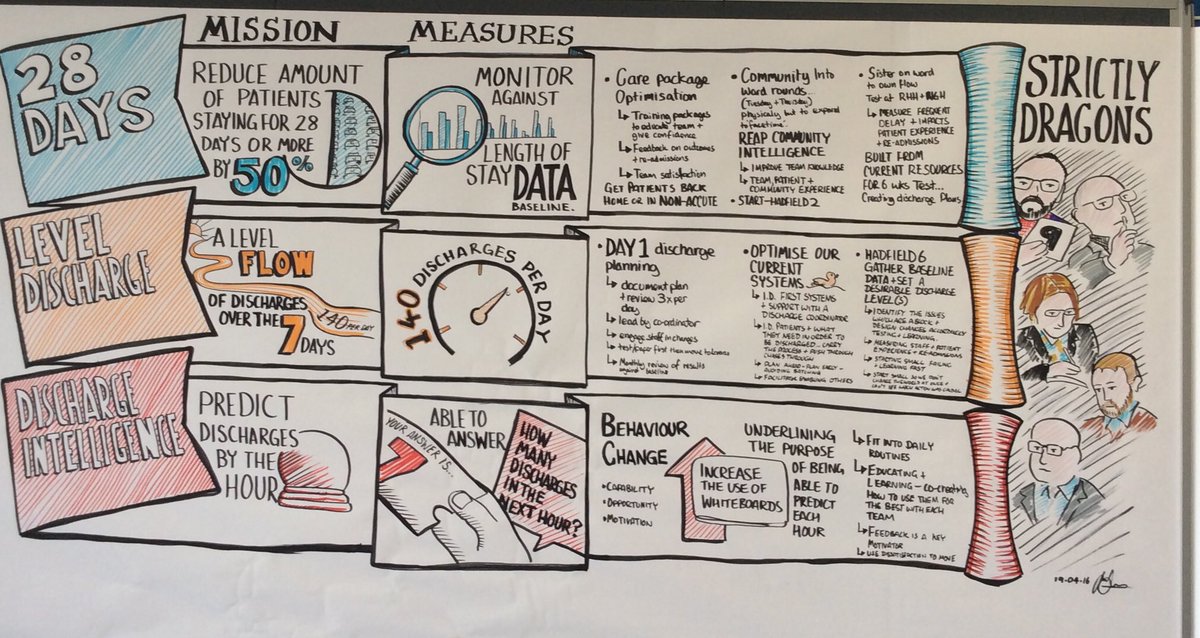 MISSION
MEASURES
28
DAYS
REDUCE AMOUNT
OF PATIENTS
STAYING FOR 28
DAYS OR MORE
BY 50%
MONITOR
AGAINST
LENGTH OF
STAY DATA
BASELINE.
• Care package
Optimisation
↳ Training packages
to educate team +
give confidence
↳ Feedback on outcomes
+ re-admissions
↳ Team satisfaction
GET PATIENTS BACK
HOME OR IN NON-ACUTE
• Community Into
Word rounds...
(Tuesday + Thursday)
physically but to expand
to facetime.
REAP COMMUNITY
INTELLIGENCE
↳ IMPROVE TEAM KNOWLEDGE
↳ TEAM PATIENT +
COMMUNITY EXPERIENCE
• START-HADFIELD 2
• Sister on word
to own flow
Test at RHH + NGH
↳ MEASURE FREQUENT
DELAY + IMPACTS
PATIENT EXPERIENCE
+ RE-ADMISSIONS
BUILT FROM
CURRENT RESOURCES
FOR 6 wks Test...
Creating discharge Plans
STRICTLY
DRAGONS
9
LEVEL
DISCHARGE
A LEVEL
FLOW
OF DISCHARGES
OVER THE
7 DAYS
140 PER DAY
140 DISCHARGES PER DAY
• DAY 1 discharge
planning
↳ document plan
+ review 3x per
day
↳ lead by co-ordinator
↳ engage staff in changes
↳ test paper first then move to
↳ Monthly review of results
against baseline
• OPTIMISE OUR
CURRENT
SYSTEMS
↳ I.D. FIRST SYSTEMS
+ SUPPORT WITH A
DISCHARGE COORDINATOR
↳ I.D. PATIENTS + WHAT
THEY NEED IN ORDER TO
BE DISCHARGED... CARRY
THE PROCESS + PUSH THROUGH
CHASE THROUGH
↳ PLAN AHEAD - PLAN EARLY -
AVOIDING BATCHING
↳ FACILITATOR ENABLING OTHERS
• HADFIELD 6
GATHER BASELINE
DATA + SET A
DESIRABLE DISCHARGE
LEVEL(S)
↳ IDENTIFY THE ISSUES
WHICH ARE A BLOCK +
DESIGN CHANGES ACCORDINGLY
TESTING + LEARNING.
↳ MEASURING STAFF + PATIENT
EXPERIENCE + RE-ADMISSIONS
↳ STARTING SMALL FAILING
+ LEARNING FAST
↳ START SMALL SO WE DON'T
CHANGE THE WORLD AT ONCE +
CAN'T SEE WHICH ACTION WAS CAUSAL
DISCHARGE
INTELLIGENCE
PREDICT
DISCHARGES
BY THE
HOUR
ABLE TO
ANSWER
YOUR ANSWER IS...
7
HOW
MANY
DISCHARGES
IN THE
NEXT HOUR?
BEHAVIOUR
CHANGE
• CAPABILITY
• OPPORTUNITY
• MOTIVATION
INCREASE
THE USE OF
WHITEBOARDS
UNDERLINING
THE PURPOSE
OF BEING
ABLE TO
PREDICT
EACH
HOUR
↳ FIT INTO DAILY
ROUTINES
↳ EDUCATING +
LEARNING - CO-CREATING
HOW TO USE THEM FOR
THE BEST WITH EACH
TEAM
↳ FEEDBACK IS A KEY
MOTIVATOR
↳ USE DISSATISFACTION TO MOVE
19-04-16